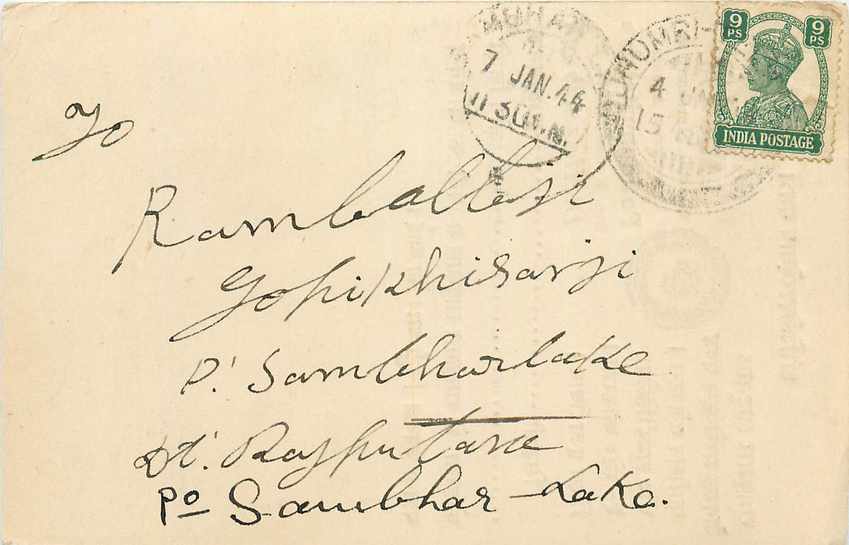 9 PS 9 PS
INDIA POSTAGE
7 JAN.44
4 JA
15
To
Ramballeji
Gopikhisarji
P. Sambharlake
Dt. Rajputana
Po Sambhar Lake.